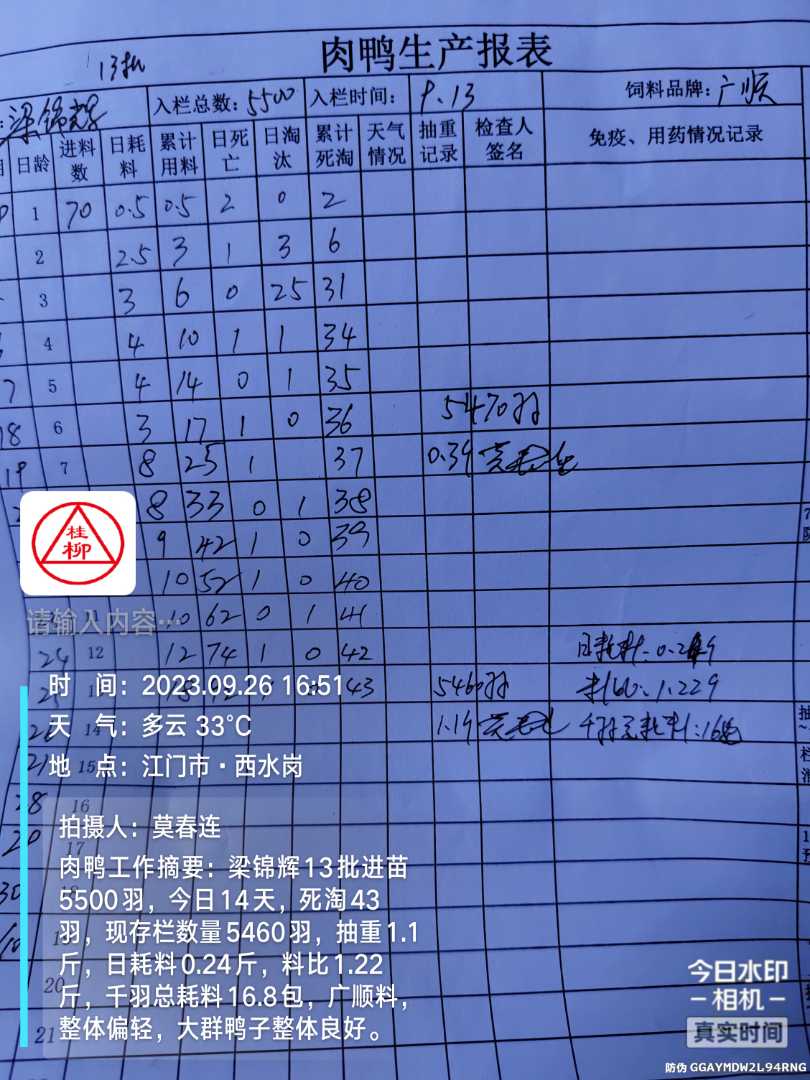 肉鸭生产报表
13批
梁锦辉 入栏总数：5500 入栏时间：9.13 饲料品牌：广顺
日龄 进料数 日耗料 累计用料 日死亡 日淘汰 累计死淘 天气情况 抽重记录 检查人签名 免疫、用药情况记录
1 70 0.5 0.5 2 0 2
2 2.5 3 1 3 6
3 3 6 0 25 31
4 4 10 1 1 34
5 4 14 0 1 35
18 6 3 17 1 0 36 5470羽
19 7 8 25 1 37 0.39
8 33 0 1 38
9 42 1 0 39
10 52 1 0 40
11 10 62 0 1 41
24 12 12 74 1 0 42 日耗料：0.24
0 43 5460羽 料比：1.229
14 1.19 千羽总耗料：16.8包
15
28 16
17
30
20
21
桂柳
请输入内容…
时 间：2023.09.26 16:51
天 气：多云 33℃
地 点：江门市·西水岗
拍摄人：莫春连
肉鸭工作摘要：梁锦辉13批进苗
5500羽，今日14天，死淘43
羽，现存栏数量5460羽，抽重1.1
斤，日耗料0.24斤，料比1.22
斤，千羽总耗料16.8包，广顺料，
整体偏轻，大群鸭子整体良好。
今日水印
相机
真实时间
防伪 GGAYMDW2L94RNG